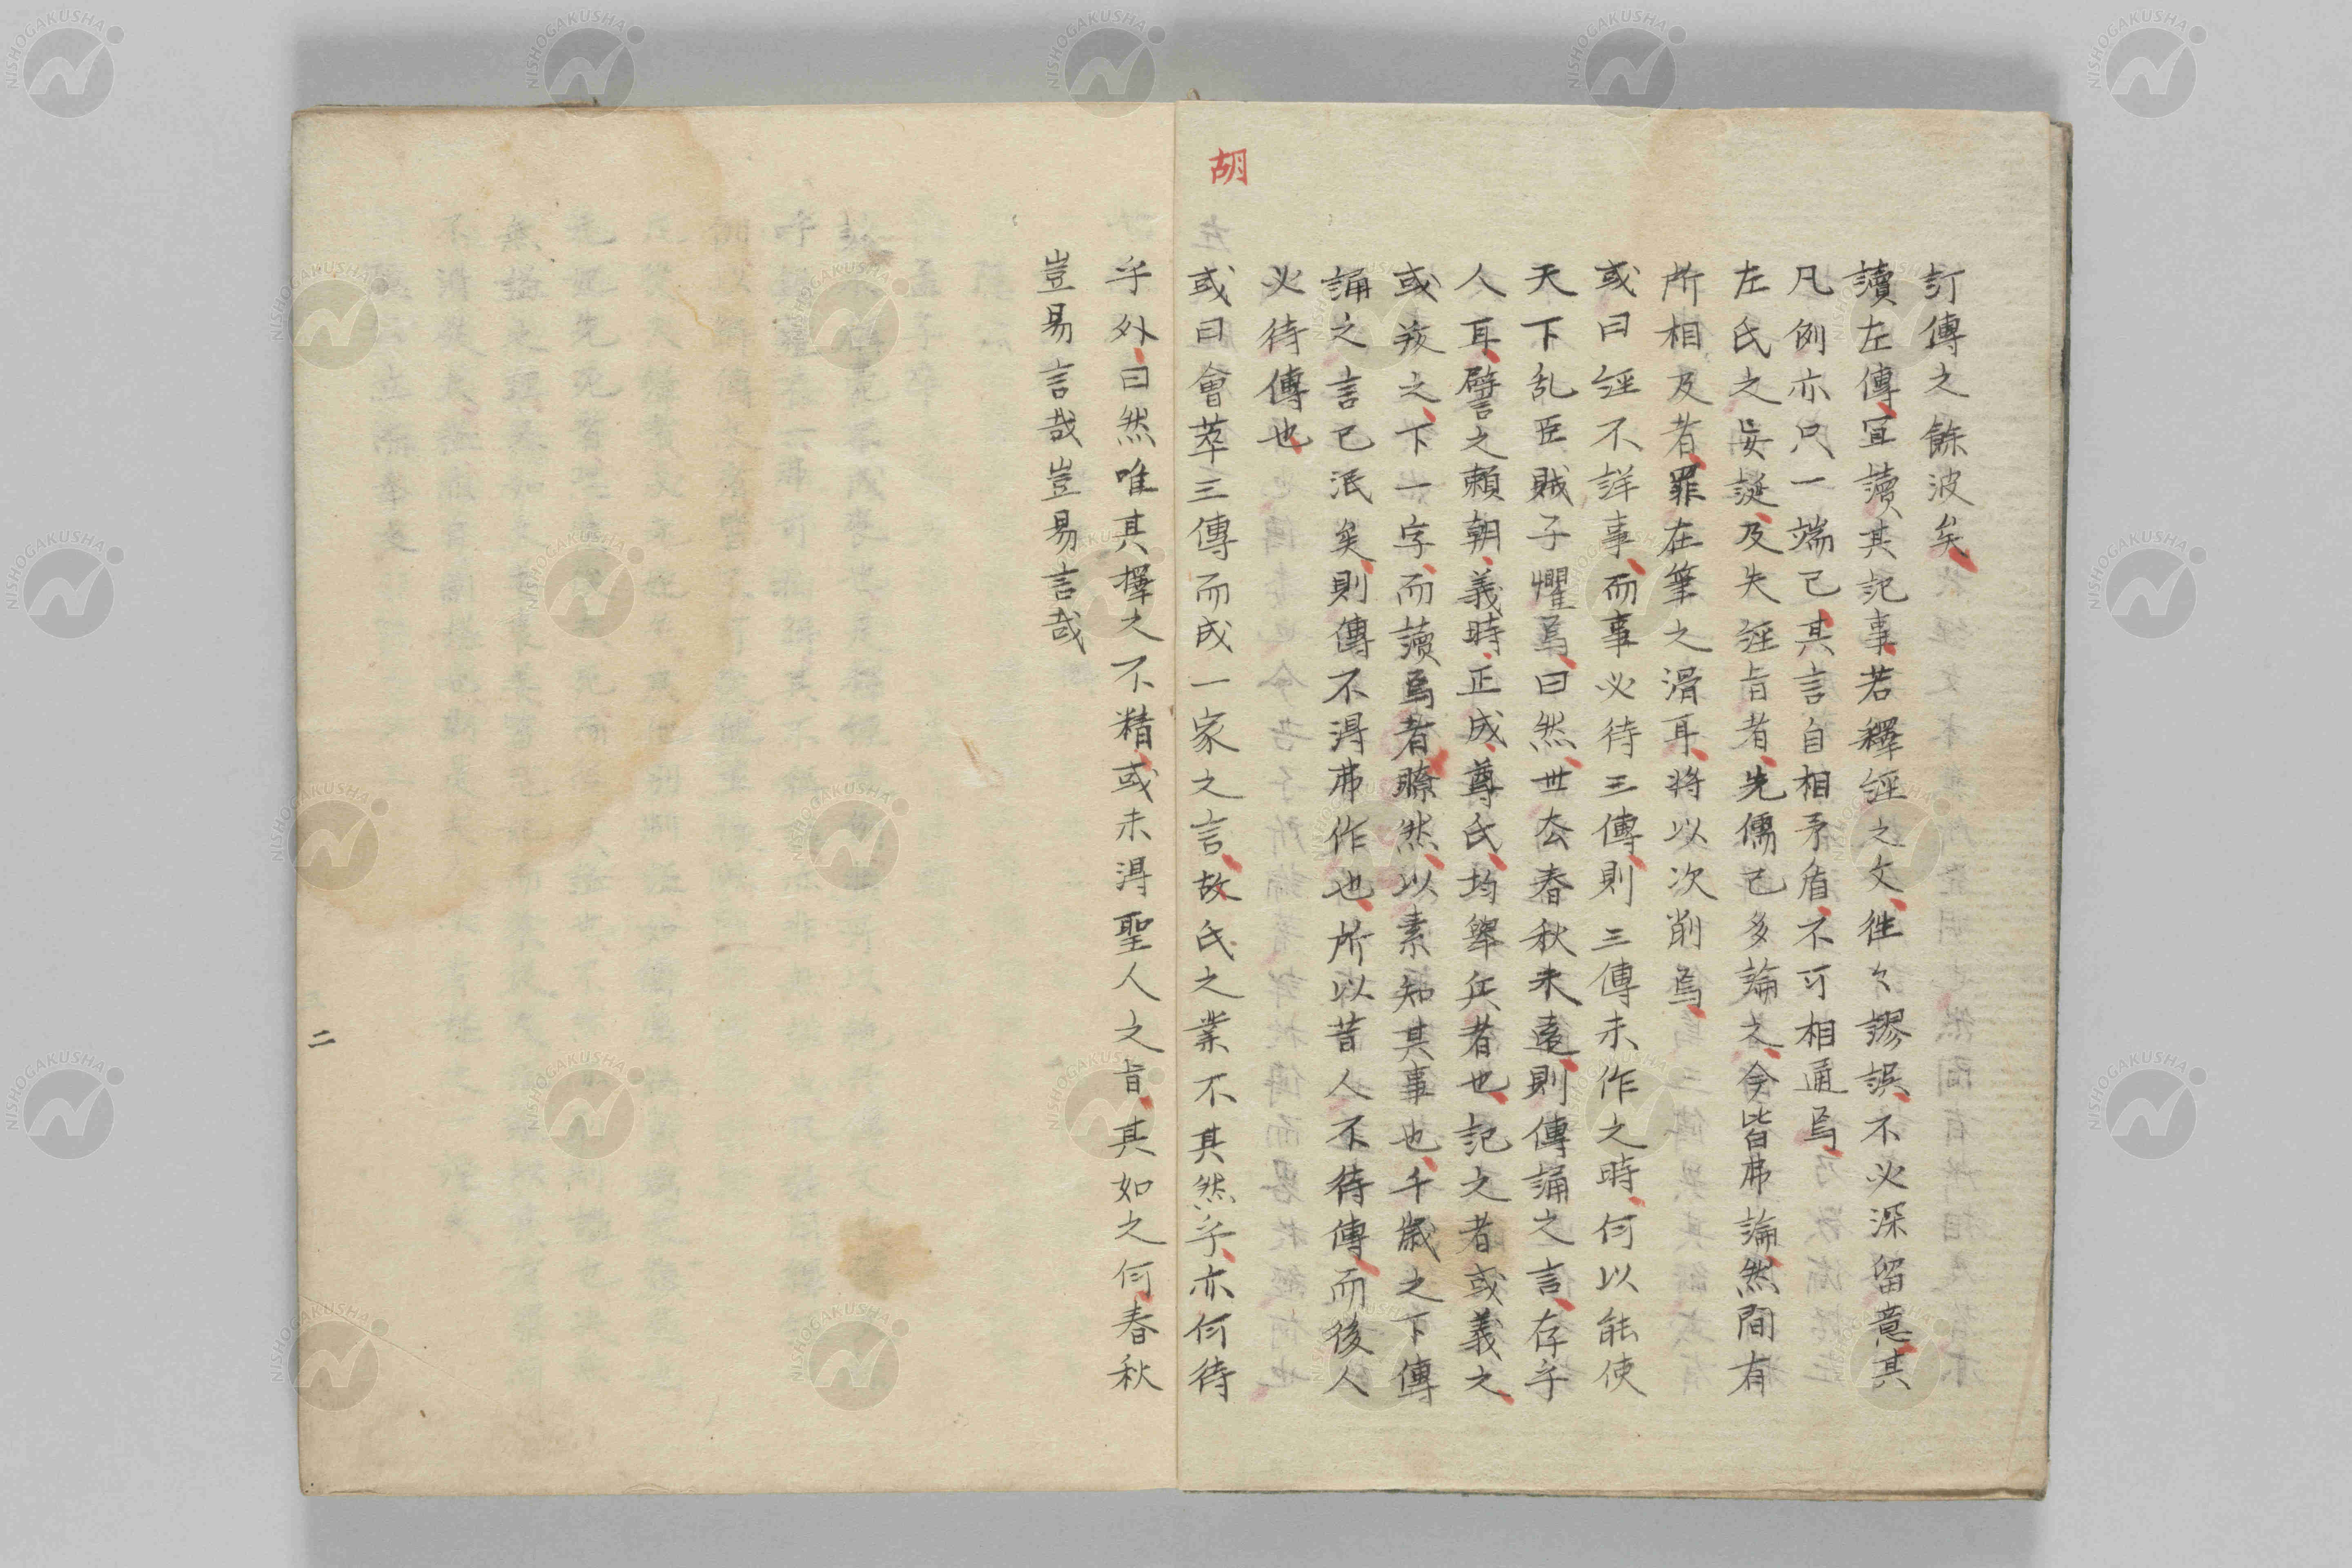 訂傳之餘波矣
讀左傳、宜讀其記事、若釋經之文、徃々謬誤、不必深留意、其
凡例亦只一端已、其言自相矛盾、不可相通焉、
左氏之妄誕、及失經旨者、先儒已多論之、今皆弗論、然間有
所相及者、罪在筆之滑耳、將以次削焉、
或曰經不詳事、而事必待三傳、則三傳未作之時、何以能使
天下乱臣賊子懼焉、曰然、世厺春秋未遠、則傳誦之言、存乎
人耳、譬之賴朝、義時、正成、尊氏、均舉兵者也、記之者或義之、
或叛之、下一字、而讀焉者瞭然、以素知其事也、千歲之下傳
誦之言已泯矣、則傳不得弗作也、所以昔人不待傳、而後人
必待傳也、
胡
或曰會萃三傳而成一家之言、故氏之業不其然乎、亦何待
乎外、曰然唯其擇之不精、或未得聖人之旨、其如之何、春秋
豈易言哉豈易言哉
二
NISHOGAKUSHA